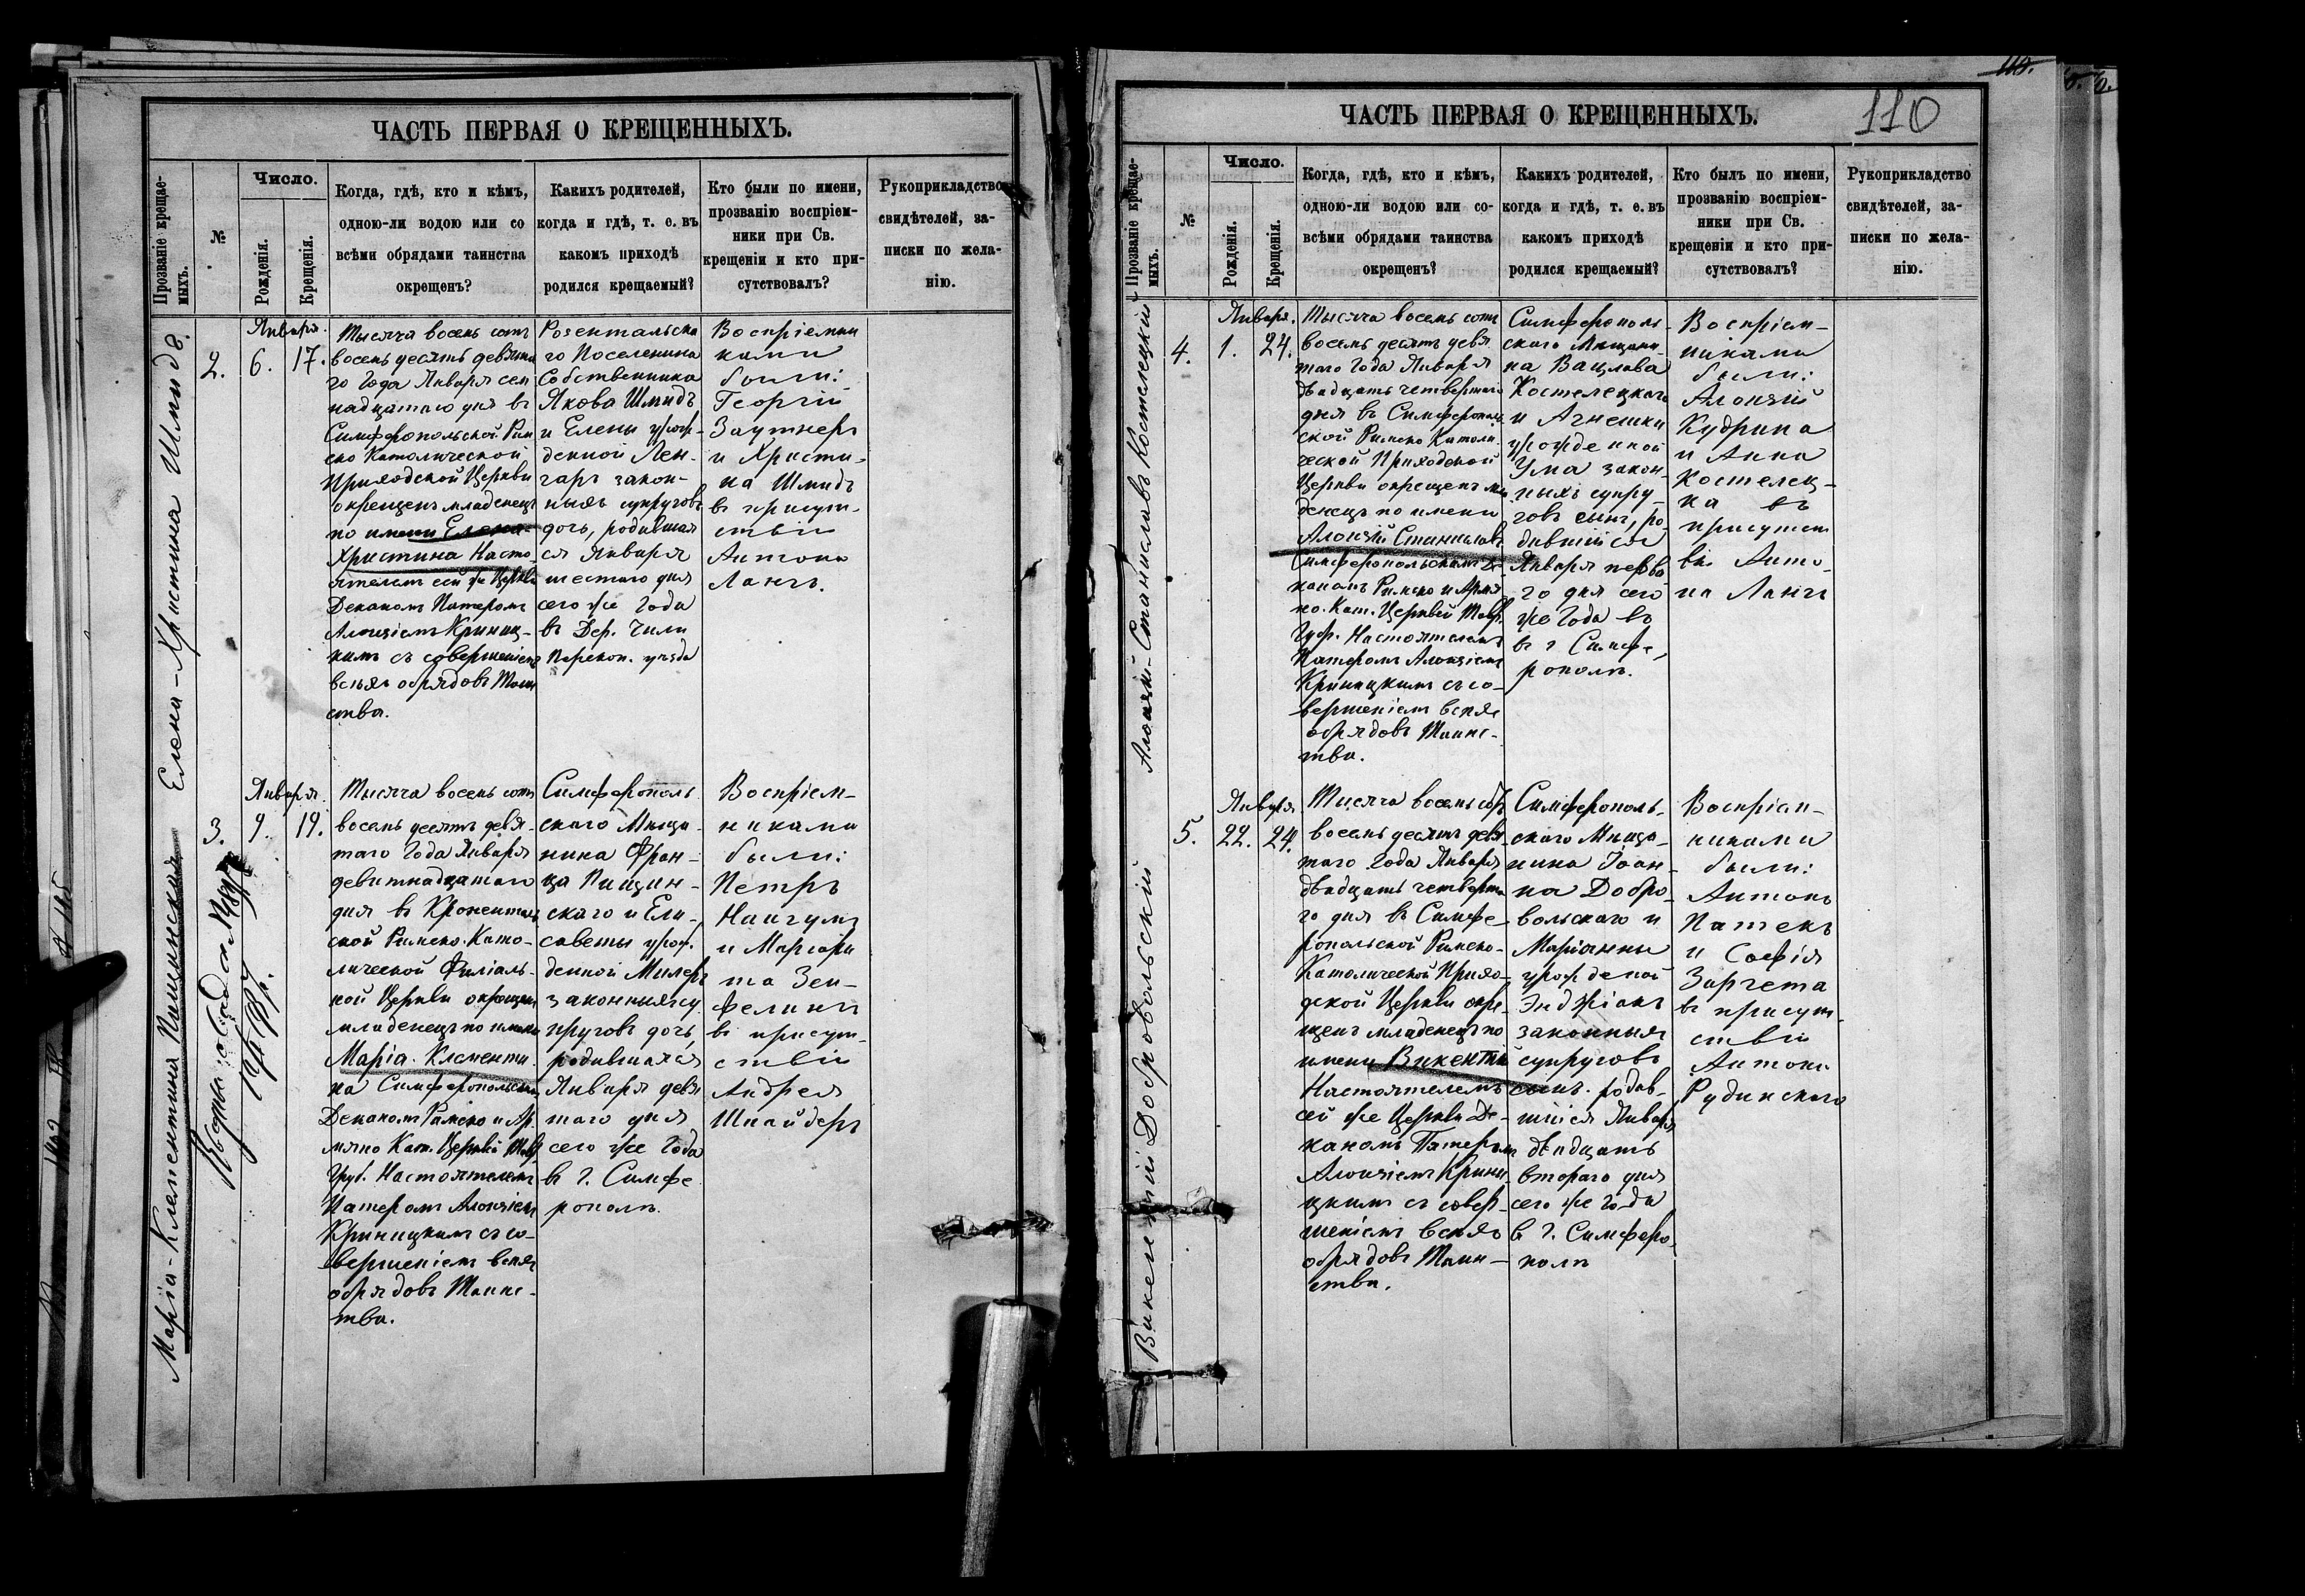 ЧАСТЬ ПЕРВАЯ О КРЕЩЕННЫХЪ.
Прозваніе крещае-
мыхъ.
№
Число.
Рожденія.
Крещенія.
Когда, гдѣ, кто и кѣмъ,
одною-ли водою или со
всѣми обрядами таинства
окрещенъ?
Какихъ родителей,
когда и гдѣ, т. е. въ
какомъ приходѣ
родился крещаемый?
Кто были по имени,
прозванію воспріем-
ники при Св.
крещеніи и кто при-
сутствовалъ?
Рукоприкладство
свидѣтелей, за-
писки по жела-
нію.
Елена-Христина Шмидъ
2.
Января.
6. 17.
Тысяча восемь сотъ
восемьдесятъ девята
го Года Января сем
надцатаго дня въ
Симферопольской Рим
ско Католической
Приходской Церкви
окрещенъ младенецъ
по имени Елена
Христина Насто
ятелемъ сей же Церкви
Деканомъ Патеромъ
Алоизіемъ Криниц-
кимъ съ совершеніемъ
всѣхъ обрядовъ Таин
ства.
Розентальска
го Поселенина
Собственника
Якова Шмидъ
и Елены урож-
денной Лен-
гаръ закон-
ныхъ супруговъ
дочь, родившая
ся Января
шестаго дня
сего же Года
въ Дер. Чили
Перекоп. уѣзда
Воспріемни
ками
были:
Георгій
Заутнеръ
и Христи-
на Шмидъ
въ присут-
ствіи
Антона
Лангъ.
Марія-Клементина Пищинская
3.
Января.
9. 19.
Тысяча восемь сотъ
восемьдесятъ девя-
таго Года Января
девятнадцатаго
дня въ Кроненталь
ской Римско. Като-
лической Филіаль-
ной Церкви окрещенъ
младенецъ по имени
Марія. Клементи-
на Симферопольскимъ
Деканомъ Римско и Ар-
мяно Кат. Церквей Тавр
Губ. Настоятелемъ
Патеромъ Алоизіемъ
Криницкимъ съ со-
вершеніемъ всѣхъ
обрядовъ Таинс-
тва.
Симферополь
скаго Мѣща-
нина Фран-
ца Пищин-
скаго и Ели-
саветы урож.
денной Милеръ
законныхъ су
пруговъ дочь,
родившаяся
Января девя
таго дня
сего же Года
въ г. Симфе
рополѣ.
Воспріем-
никами
были:
Петръ
Нангумъ
и Маргари
та Зен-
фелингъ
въ присут-
ствіи
Андрея
Шнайдеръ
ЧАСТЬ ПЕРВАЯ О КРЕЩЕННЫХЪ.
110
Прозваніе крещае-
мыхъ.
№
Число.
Рожденія.
Крещенія.
Когда, гдѣ, кто и кѣмъ,
одною-ли водою или со-
всѣми обрядами таинства
окрещенъ?
Какихъ родителей,
когда и гдѣ, т. е. въ
какомъ приходѣ
родился крещаемый?
Кто былъ по имени,
прозванію воспріем-
ники при Св.
крещеніи и кто при-
сутствовалъ?
Рукоприкладство
свидѣтелей, за-
писки по жела-
нію.
Алоизій-Станиславъ Костелецкій
4.
Января.
1. 24.
Тысяча восемь сотъ
восемьдесятъ девя
таго Года Января
двадцать четвертаго
дня въ Симферополь
ской Римско Католи
ческой Приходской
Церкви окрещенъ мла
денецъ по имени
Алоизій Станиславъ
Симферопольскимъ Де-
каномъ Римско и Армя
но. Кат. Церквей Тавр.
Губ. Настоятелемъ
Патеромъ Алоизіемъ
Криницкимъ съ со-
вершеніемъ всѣхъ
обрядовъ Таинс-
тва.
Симферополь-
скаго Мѣщани-
на Вацлава
Костелецкаго
и Агнешки
урожденной
Ума закон-
ныхъ супру-
говъ сынъ, ро-
дившійся
Января перва
го дня сего
же Года въ
въ г Симфе,
рополѣ.
Воспріем-
никами
были:
Алоизій
Кудрина
и Анна
Костелец-
ка въ
присутст
віи Анто-
на Лангъ
Викентій Добровольскій
5.
Января.
22. 24.
Тысяча восемь сотъ
восемьдесятъ девя
таго Года Января
двадцать четверта
го дня въ Симфе
ропольской Римско-
Католической Прихо-
дской Церкви окре-
щенъ младенецъ по
имени Викентій
Настоятелемъ
сей же Церкви Де-
каномъ Патеромъ
Алоизіемъ Крини-
цкимъ съ совер-
шеніемъ всѣхъ
обрядовъ Таин-
ства.
Симферополь-
скаго Мѣща-
нина Іоан-
на Добро-
вольскаго и
Маріанны
урожденной
Энджіакъ
законныхъ
супруговъ
сынъ. родив-
шійся Января
двадцать
втораго дня
сего же Года
въ г. Симферо-
полѣ
Воспріем-
никами
были:
Антонъ
Патекъ
и Софія
Заргета
въ присут-
ствіи
Антона
Рудинскаго